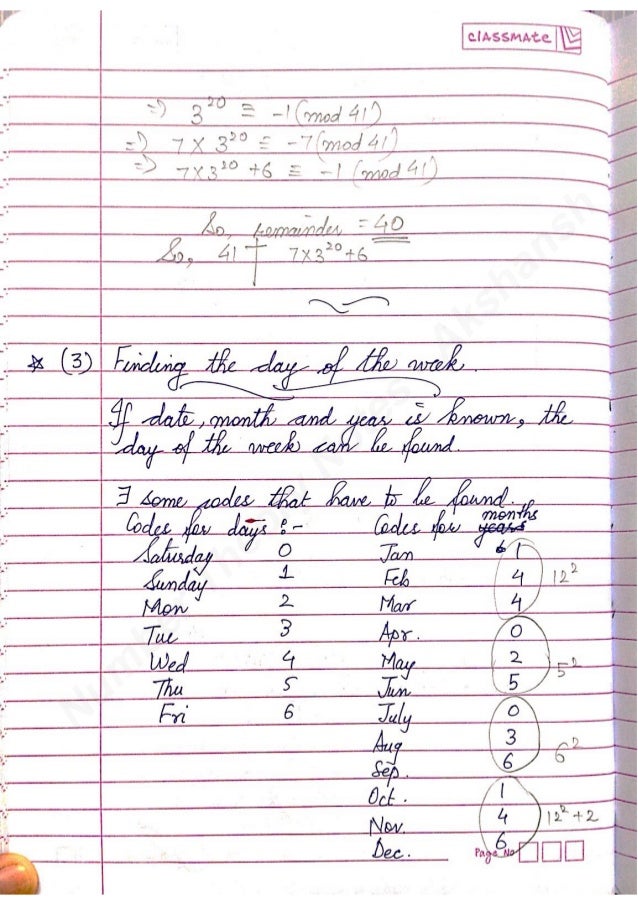 CLASSMATE
⇒) 3^20 ≡ -1 (mod 41)
⇒) 7 × 3^20 ≡ -7 (mod 41)
⇒ 7×3^20 +6 ≡ -1 (mod 41)
So, remainder = 40
So, 41 ∤ 7×3^20+6
☆ (3) Finding the day of the week.
If date, month and year is known, the
day of the week can be found.
∃ some codes that have to be found.
Codes for days :- Codes for years months
Saturday 0 Jan 1
Sunday 1 Feb 4 12²
Mon 2 Mar 4
Tue 3 Apr. 0
Wed 4 May 2 5²
Thu 5 Jun 5
Fri 6 July 0
Aug 3 6²
Sep. 6
Oct. 1
Nov. 4 12²+2
Dec. 6
Page No